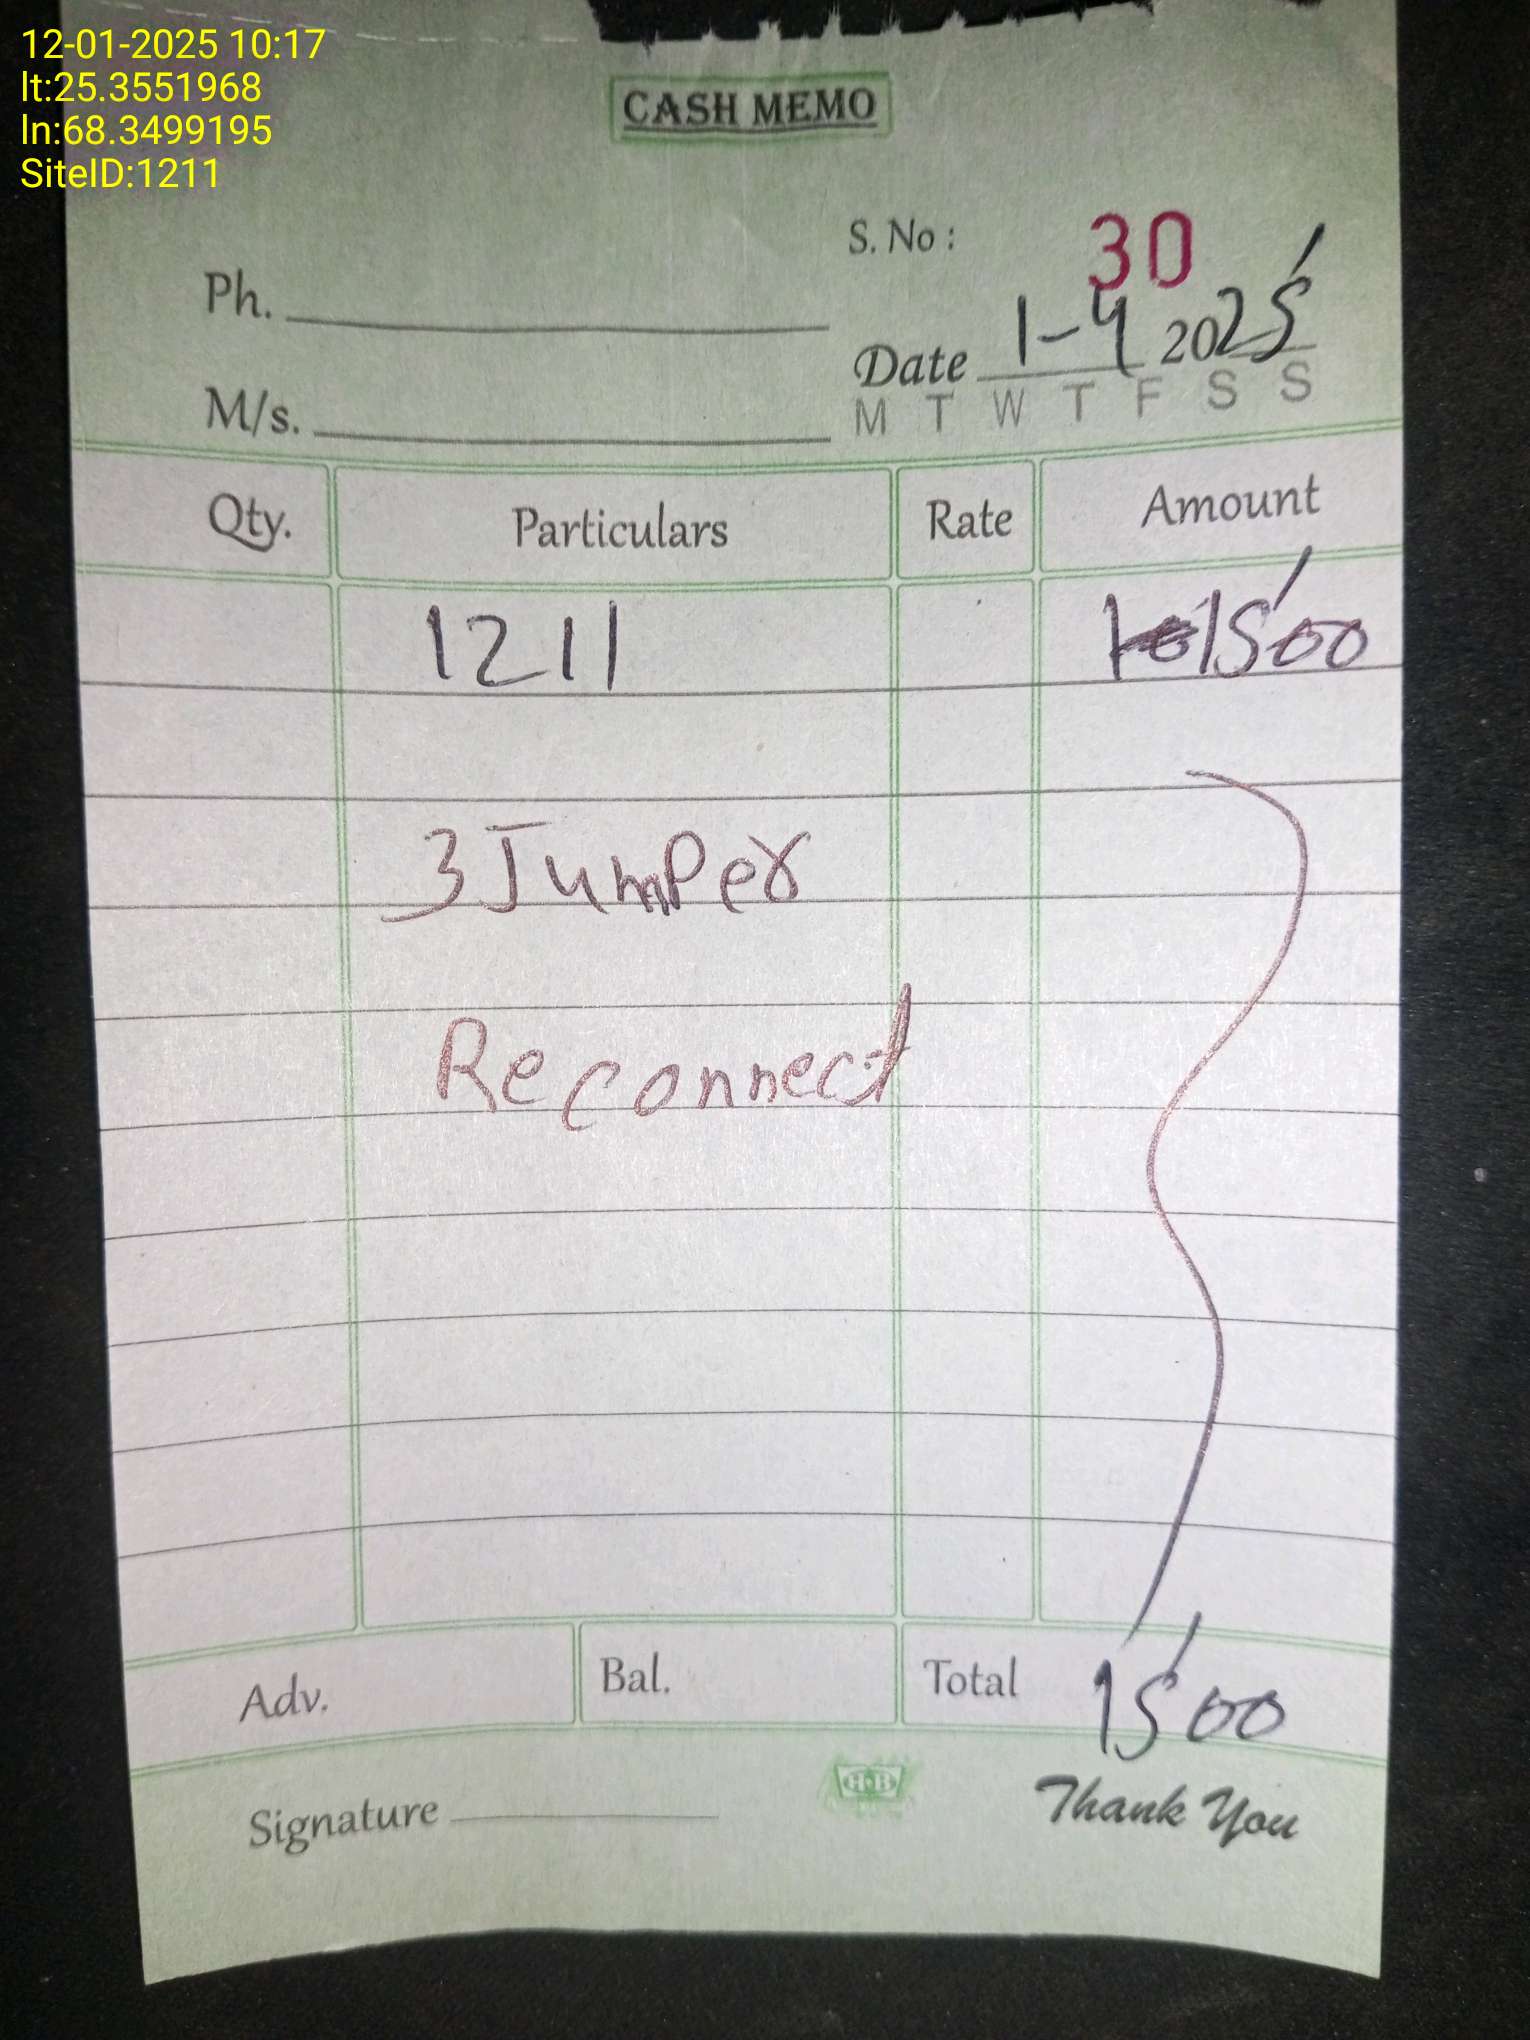 12-01-2025 10:17
lt:25.3551968
ln:68.3499195
SiteID:1211
CASH MEMO
S. No : 30
Ph.
Date 1-4 2025
M/s.
M T W T F S S
Qty. Particulars Rate Amount
1211 1500
3 Jumper
Reconnect
Adv. Bal. Total 1500
Signature
H·B
Thank You